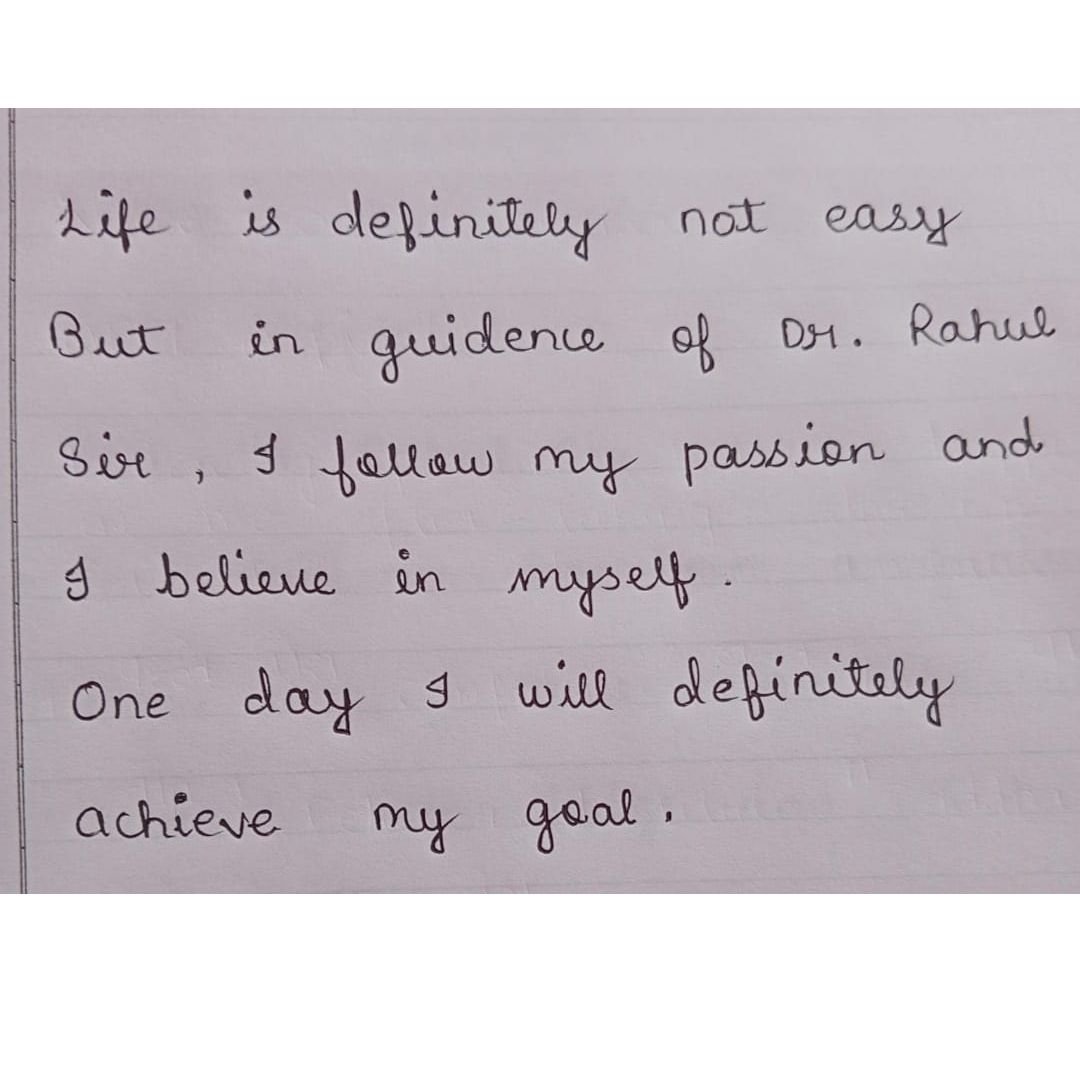 Life is definitely not easy
But in guidence of Dr. Rahul
Sir, I follow my passion and
I believe in myself.
One day I will definitely
achieve my goal.